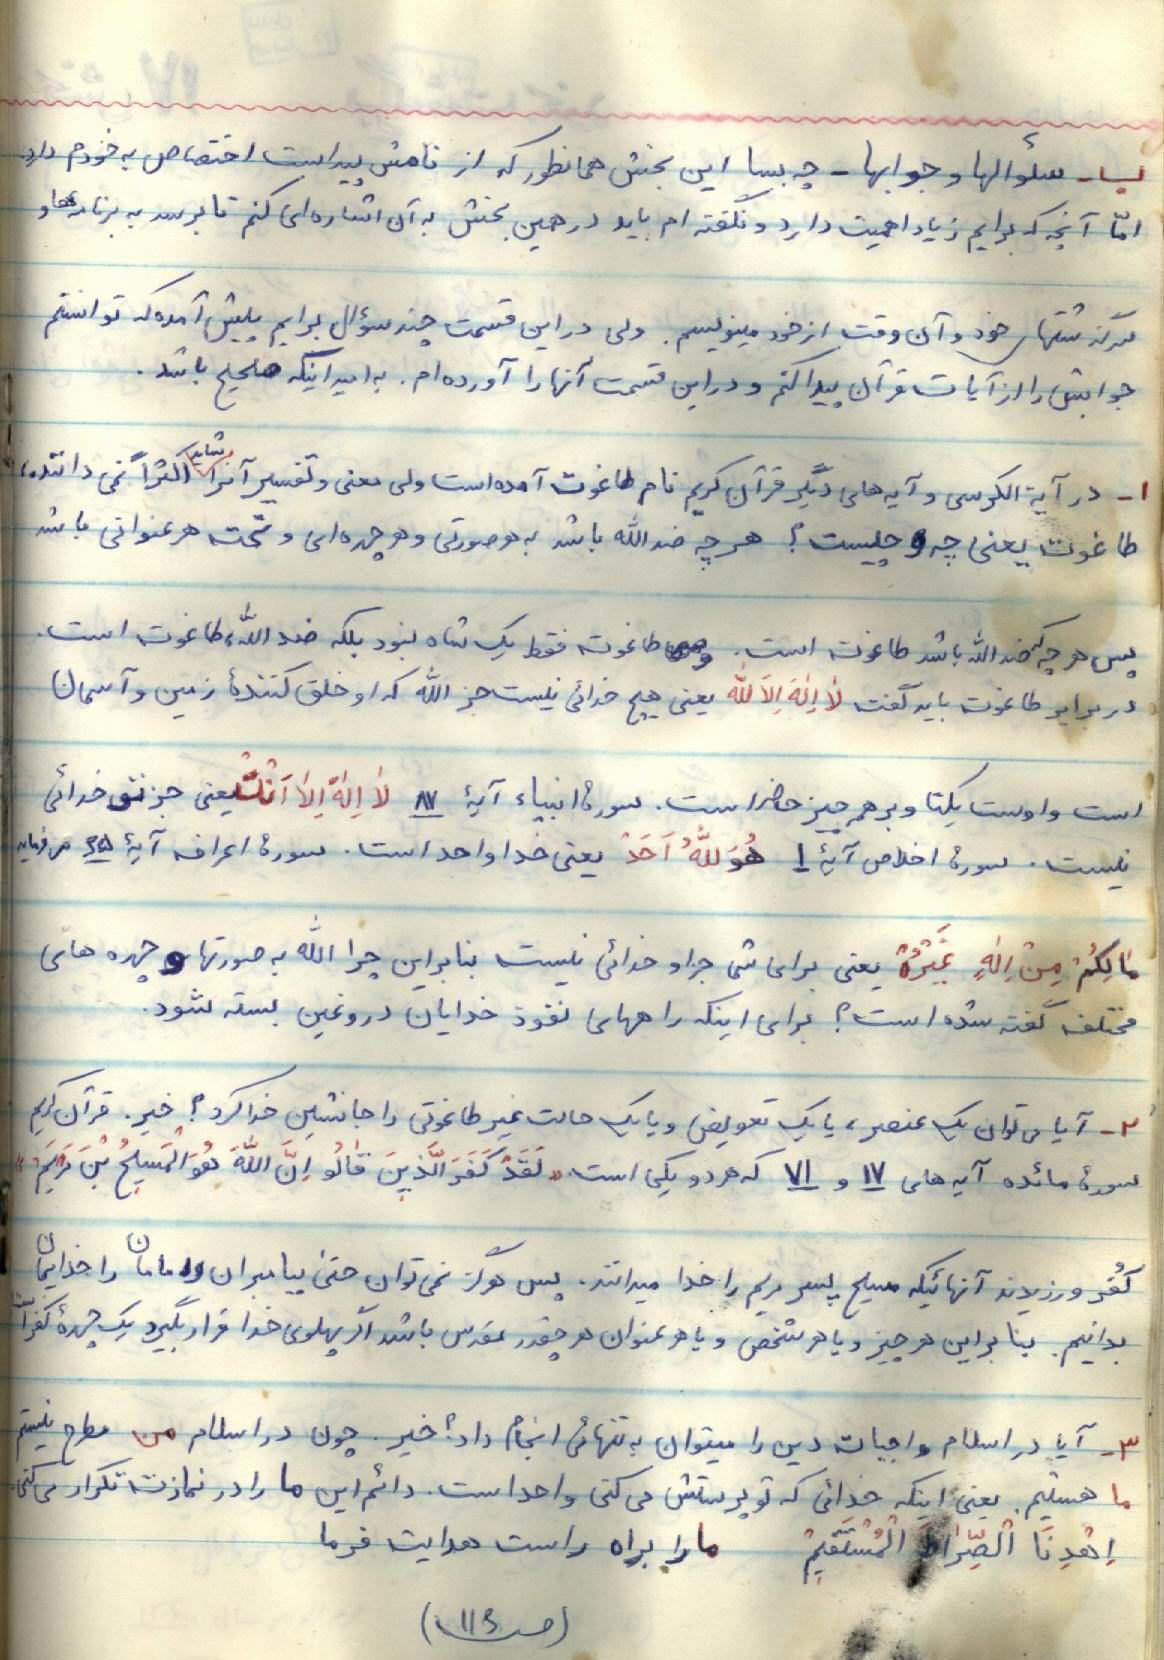 ب - سئوالها و جوابها - چه بسا این بخش همانطور که از نامش پیداست اختصاص به خودم دارد
امّا آنچه که برایم زیاد اهمیت دارد و نگفته ام باید در همین بخش به آن اشاره‌ای کنم تا برسد به برنامه‌ها و
سرگذشتهای خود و آن وقت از خود مینویسم. ولی در این قسمت چند سؤال برایم پیش آمده که توانستم
جوابش را از آیات قرآن پیدا کنم و در این قسمت آنها را آورده‌ام. به امید اینکه صحیح باشد.
۱- در آیة الکرسی و آیه‌های دیگر قرآن کریم نام طاغوت آمده است ولی معنی و تفسیر آنرا شاید اکثراً نمی دانند،
طاغوت یعنی چه و چیست؟ هر چه ضد الله باشد به هر صورتی و هر چهره‌ای و تحت هر عنوانی باشد
پس هر چه که ضد الله باشد طاغوت است. طاغوت فقط یک شاه نبود بلکه ضد الله، طاغوت است.
در برابر طاغوت باید گفت لاٰ اِلٰهَ اِلاَ لله یعنی هیچ خدائی نیست جز الله که او خلق کنندهٔ زمین و آسمان
است و اوست یکتا و بر همه چیز حاضر است. سورهٔ انبیاء آیهٔ ۸۷ لاٰ اِلهَ اِلاٰ اَنْتَ یعنی جز تو خدائی
نیست. سورهٔ اخلاص آیهٔ ۱ هُوَ للّٰهُ اَحَدْ یعنی خدا واحد است. سورهٔ اعراف آیهٔ ۶۵ می فرماید
مٰا لَکُمْ مِنْ اِلٰهٍ غَیْرُهْ یعنی برای شما جز او خدائی نیست بنابراین چرا الله به صورتها و چهره های
مختلف گفته شده است؟ برای اینکه راههای نفوذ خدایان دروغین بسته شود.
۲- آیا می توان یک عنصر، یا یک تعویض و یا یک حالت غیر طاغوتی را جانشین خدا کرد؟ خیر. قرآن کریم
سورهٔ مائده آیه های ۱۷ و ۷۱ که هر دو یکی است «لَقَدْ کَفَرَ الَّذینَ قٰالُو اِنَّ اللّٰهَ هُوَ الْمَسیحُ بْنَ مَرْیَمْ»
کُفر ورزیدند آنهائیکه مسیح پسر مریم را خدا میدانند. پس هرگز نمی توان حتیٰ پیامبران و امامان را خدایمان
بدانیم. بنابراین هر چیز و یا هر شخص و یا هر عنوان هر چقدر مقدس باشد اگر پهلوی خدا قرار بگیرد یک چهرهٔ کفر است
۳- آیا در اسلام واجبات دین را میتوان به تنهائی انجام داد؟ خیر. چون در اسلام من مطرح نیستم
ما هستیم. یعنی اینکه خدائی که تو پرستش می کنی واحد است. دائم این ما را در نمازت تکرار می کنی.
اِهْدِنَا الْصِّرٰاطَ الْمُسْتَقیمْ ما را براه راست هدایت فرما
(ص ۱۱۶)